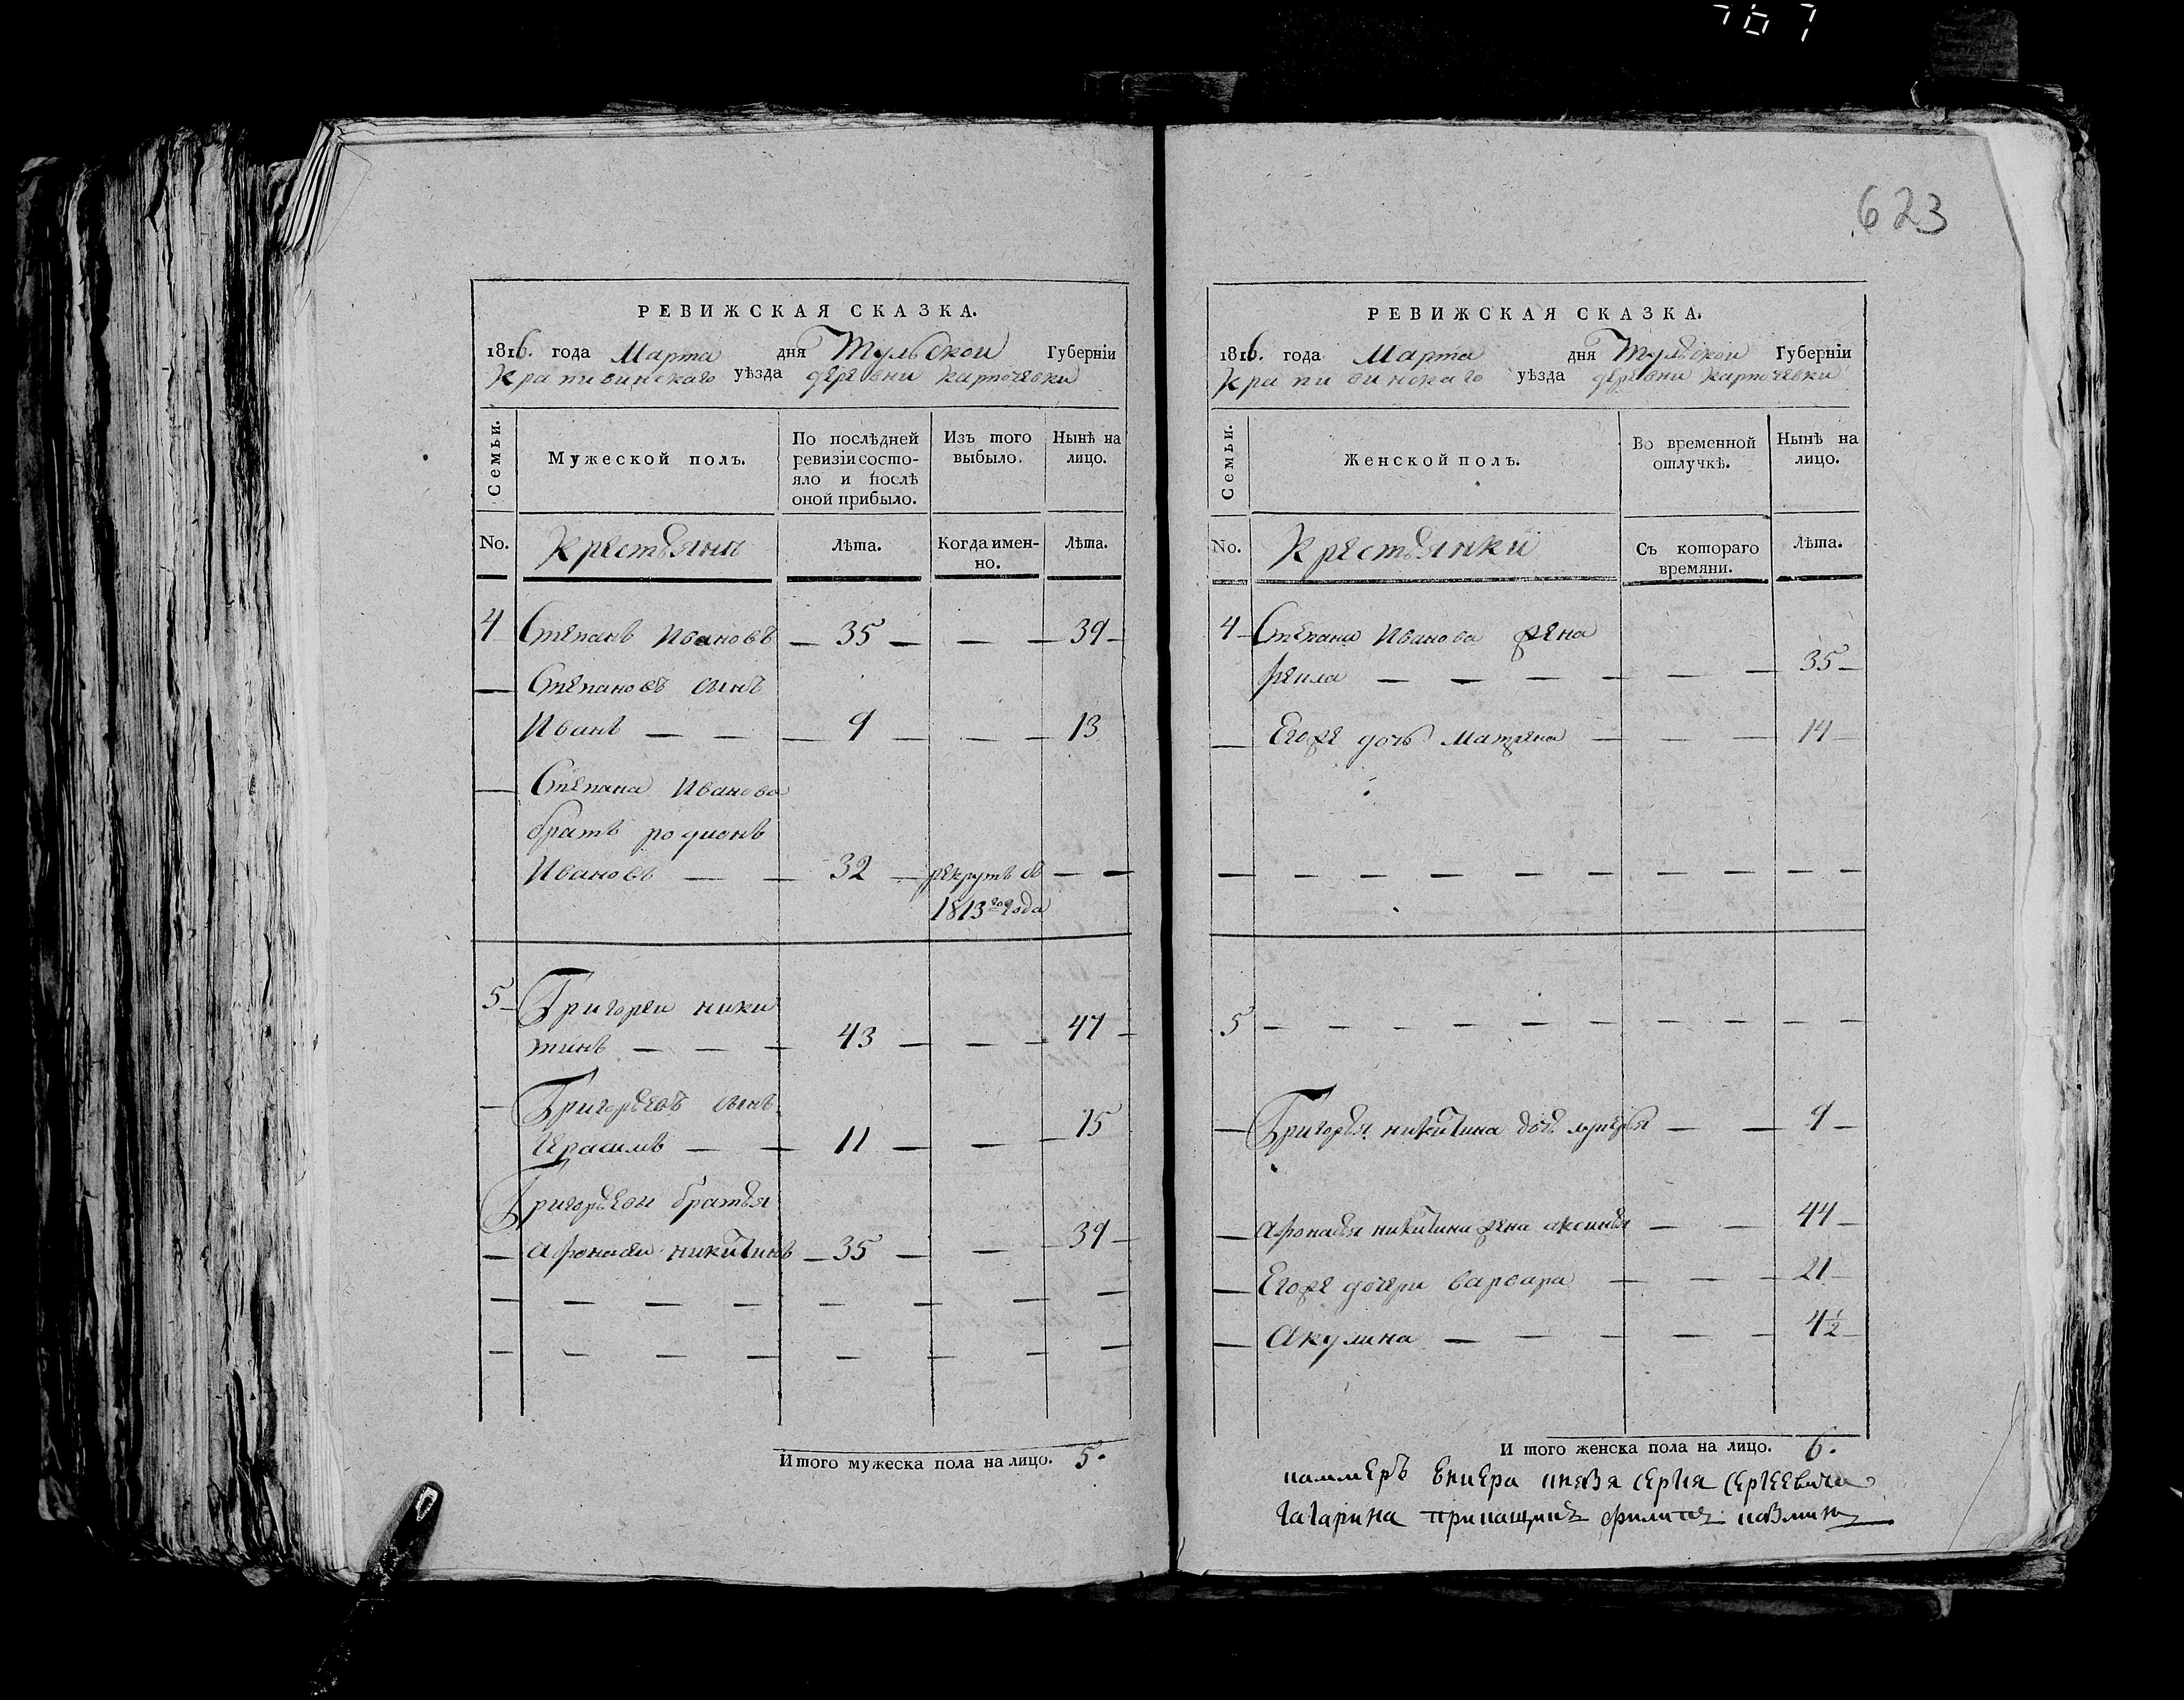 767
623
РЕВИЖСКАЯ СКАЗКА.
1816. года Марта дня Тульской Губерніи
Крапивинскаго уѣзда деревни Карпочевки
Семьи.
Мужеской полъ.
По послѣдней
ревизіи состо-
яло и послѣ
оной прибыло.
Изъ того
выбыло.
Нынѣ на
лицо.
No.
Крестьянъ
лѣта.
Когда имен-
но.
лѣта.
4 Степанъ Ивановъ — 35 — — — 39 —
— Степановъ сынъ
Иванъ — — — 9 — — — 13
— Степана Иванова
братъ родионъ
Ивановъ — — 32 — рекрутъ въ — —
1813го года
5 Григореи ники
тинъ — — — 43 — — — 47 —
— Григорьевъ сынъ
Герасимъ — — 11 — — — 15
Григорьевы братья
— Афонасеи никитинъ — 35 — — — 39 —
— — — — — — — —
— — — — — — — —
Итого мужеска пола на лицо. 5.
РЕВИЖСКАЯ СКАЗКА.
1816. года Марта дня Тульской Губерніи
Крапивинскаго уѣзда деревни Карпочевки
Семьи.
Женской полъ.
Во временной
отлучкѣ.
Нынѣ на
лицо.
No.
Крестьянки
Съ котораго
времяни.
лѣта.
4 — Степана Иванова жена
— — — — — — 35 —
— Егоже дочь Матрена — — — 14 —
— — — — — — — — — — —
5 — — — — — — — — — —
— Григорья никитина дочь — — 9 —
— Афонасья никитина жена аксинья — — 44 —
— Егоже дочери варвара — — — 21 —
— Акулина — — — — — 4½ —
И того женска пола на лицо. 6.
князя сергия сергеевича
гагарина прикащикъ филипъ